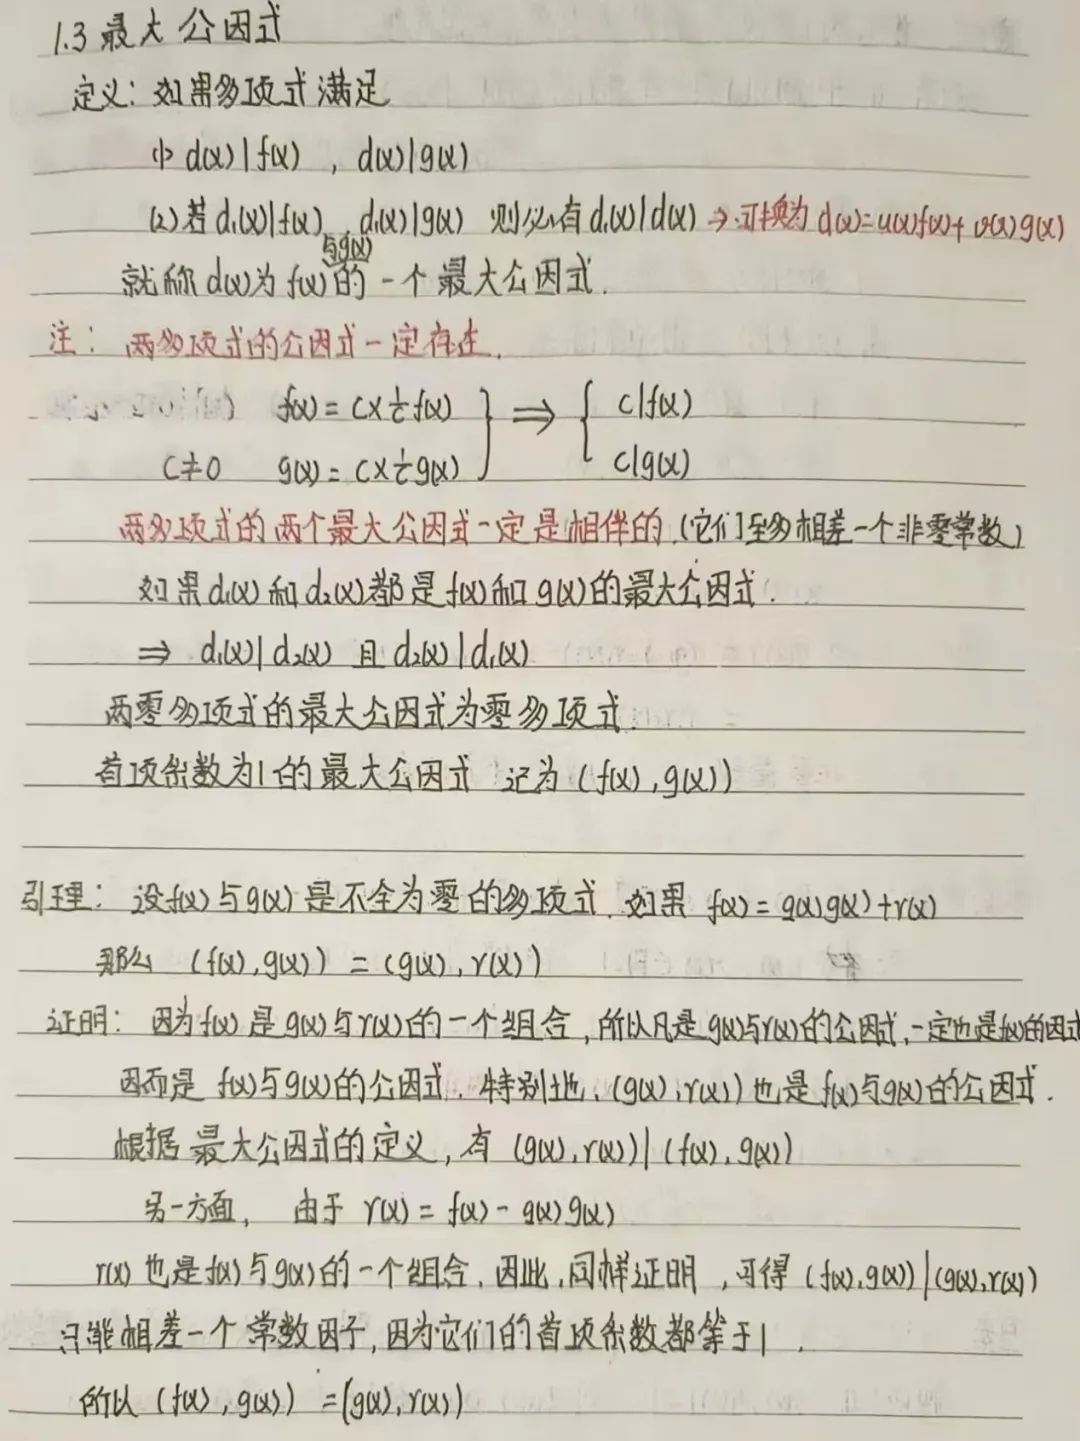 1.3 最大公因式
定义：如果多项式满足
(1) d(x)|f(x) , d(x)|g(x)
(2) 若 d₁(x)|f(x) , d₁(x)|g(x) 则必有 d₁(x)|d(x) → 可换为 d(x)=u(x)f(x)+v(x)g(x)
与g(x)
就称 d(x)为 f(x)的一个最大公因式.
注：两多项式的公因式一定存在.
f(x) = C×1/C f(x) } ⟹ { C|f(x)
C≠0 g(x) = C×1/C g(x) C|g(x)
两多项式的两个最大公因式一定是相伴的.(它们至多相差一个非零常数)
如果 d₁(x) 和 d₂(x)都是 f(x)和 g(x)的最大公因式.
⇒ d₁(x)|d₂(x) 且 d₂(x)|d₁(x)
两零多项式的最大公因式为零多项式.
首项系数为1的最大公因式 记为 (f(x),g(x))
引理：设f(x)与g(x)是不全为零的多项式.如果 f(x)=q(x)g(x)+r(x)
那么 (f(x),g(x)) = (g(x),r(x))
证明：因为f(x)是g(x)与r(x)的一个组合,所以凡是g(x)与r(x)的公因式,一定也是f(x)的因式
因而是 f(x)与g(x)的公因式.特别地,(g(x),r(x))也是f(x)与g(x)的公因式.
根据最大公因式的定义,有 (g(x),r(x))|(f(x),g(x))
另一方面, 由于 r(x)=f(x)-q(x)g(x)
r(x)也是f(x)与g(x)的一个组合,因此,同样证明,可得 (f(x),g(x))|(g(x),r(x))
只能相差一个常数因子,因为它们的首项系数都等于1.
所以 (f(x),g(x)) =(g(x),r(x))